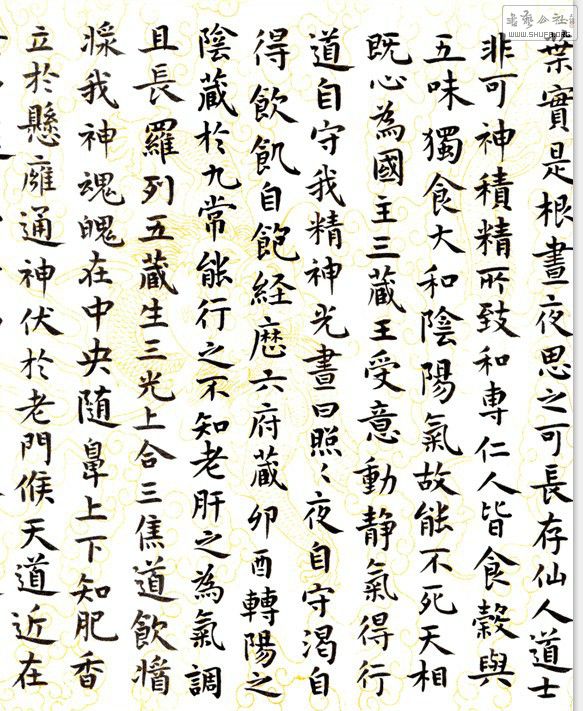 葉實是根晝夜思之可長存仙人道士
非可神積精所致和専仁人皆食穀與
五味獨食大和陰陽氣故能不死天相
既心為國主三藏王受意動靜氣得行
道自守我精神光晝日照〻夜自守渴自
得飲飢自飽経歴六府藏卯酉轉陽之
陰藏於九常能行之不知老肝之為氣調
且長羅列五藏生三光上合三焦道飲醬
漿我神魂魄在中央随鼻上下知肥香
立於懸癰通神伏於老門候天道近在
WWW.SHUFA.ORG